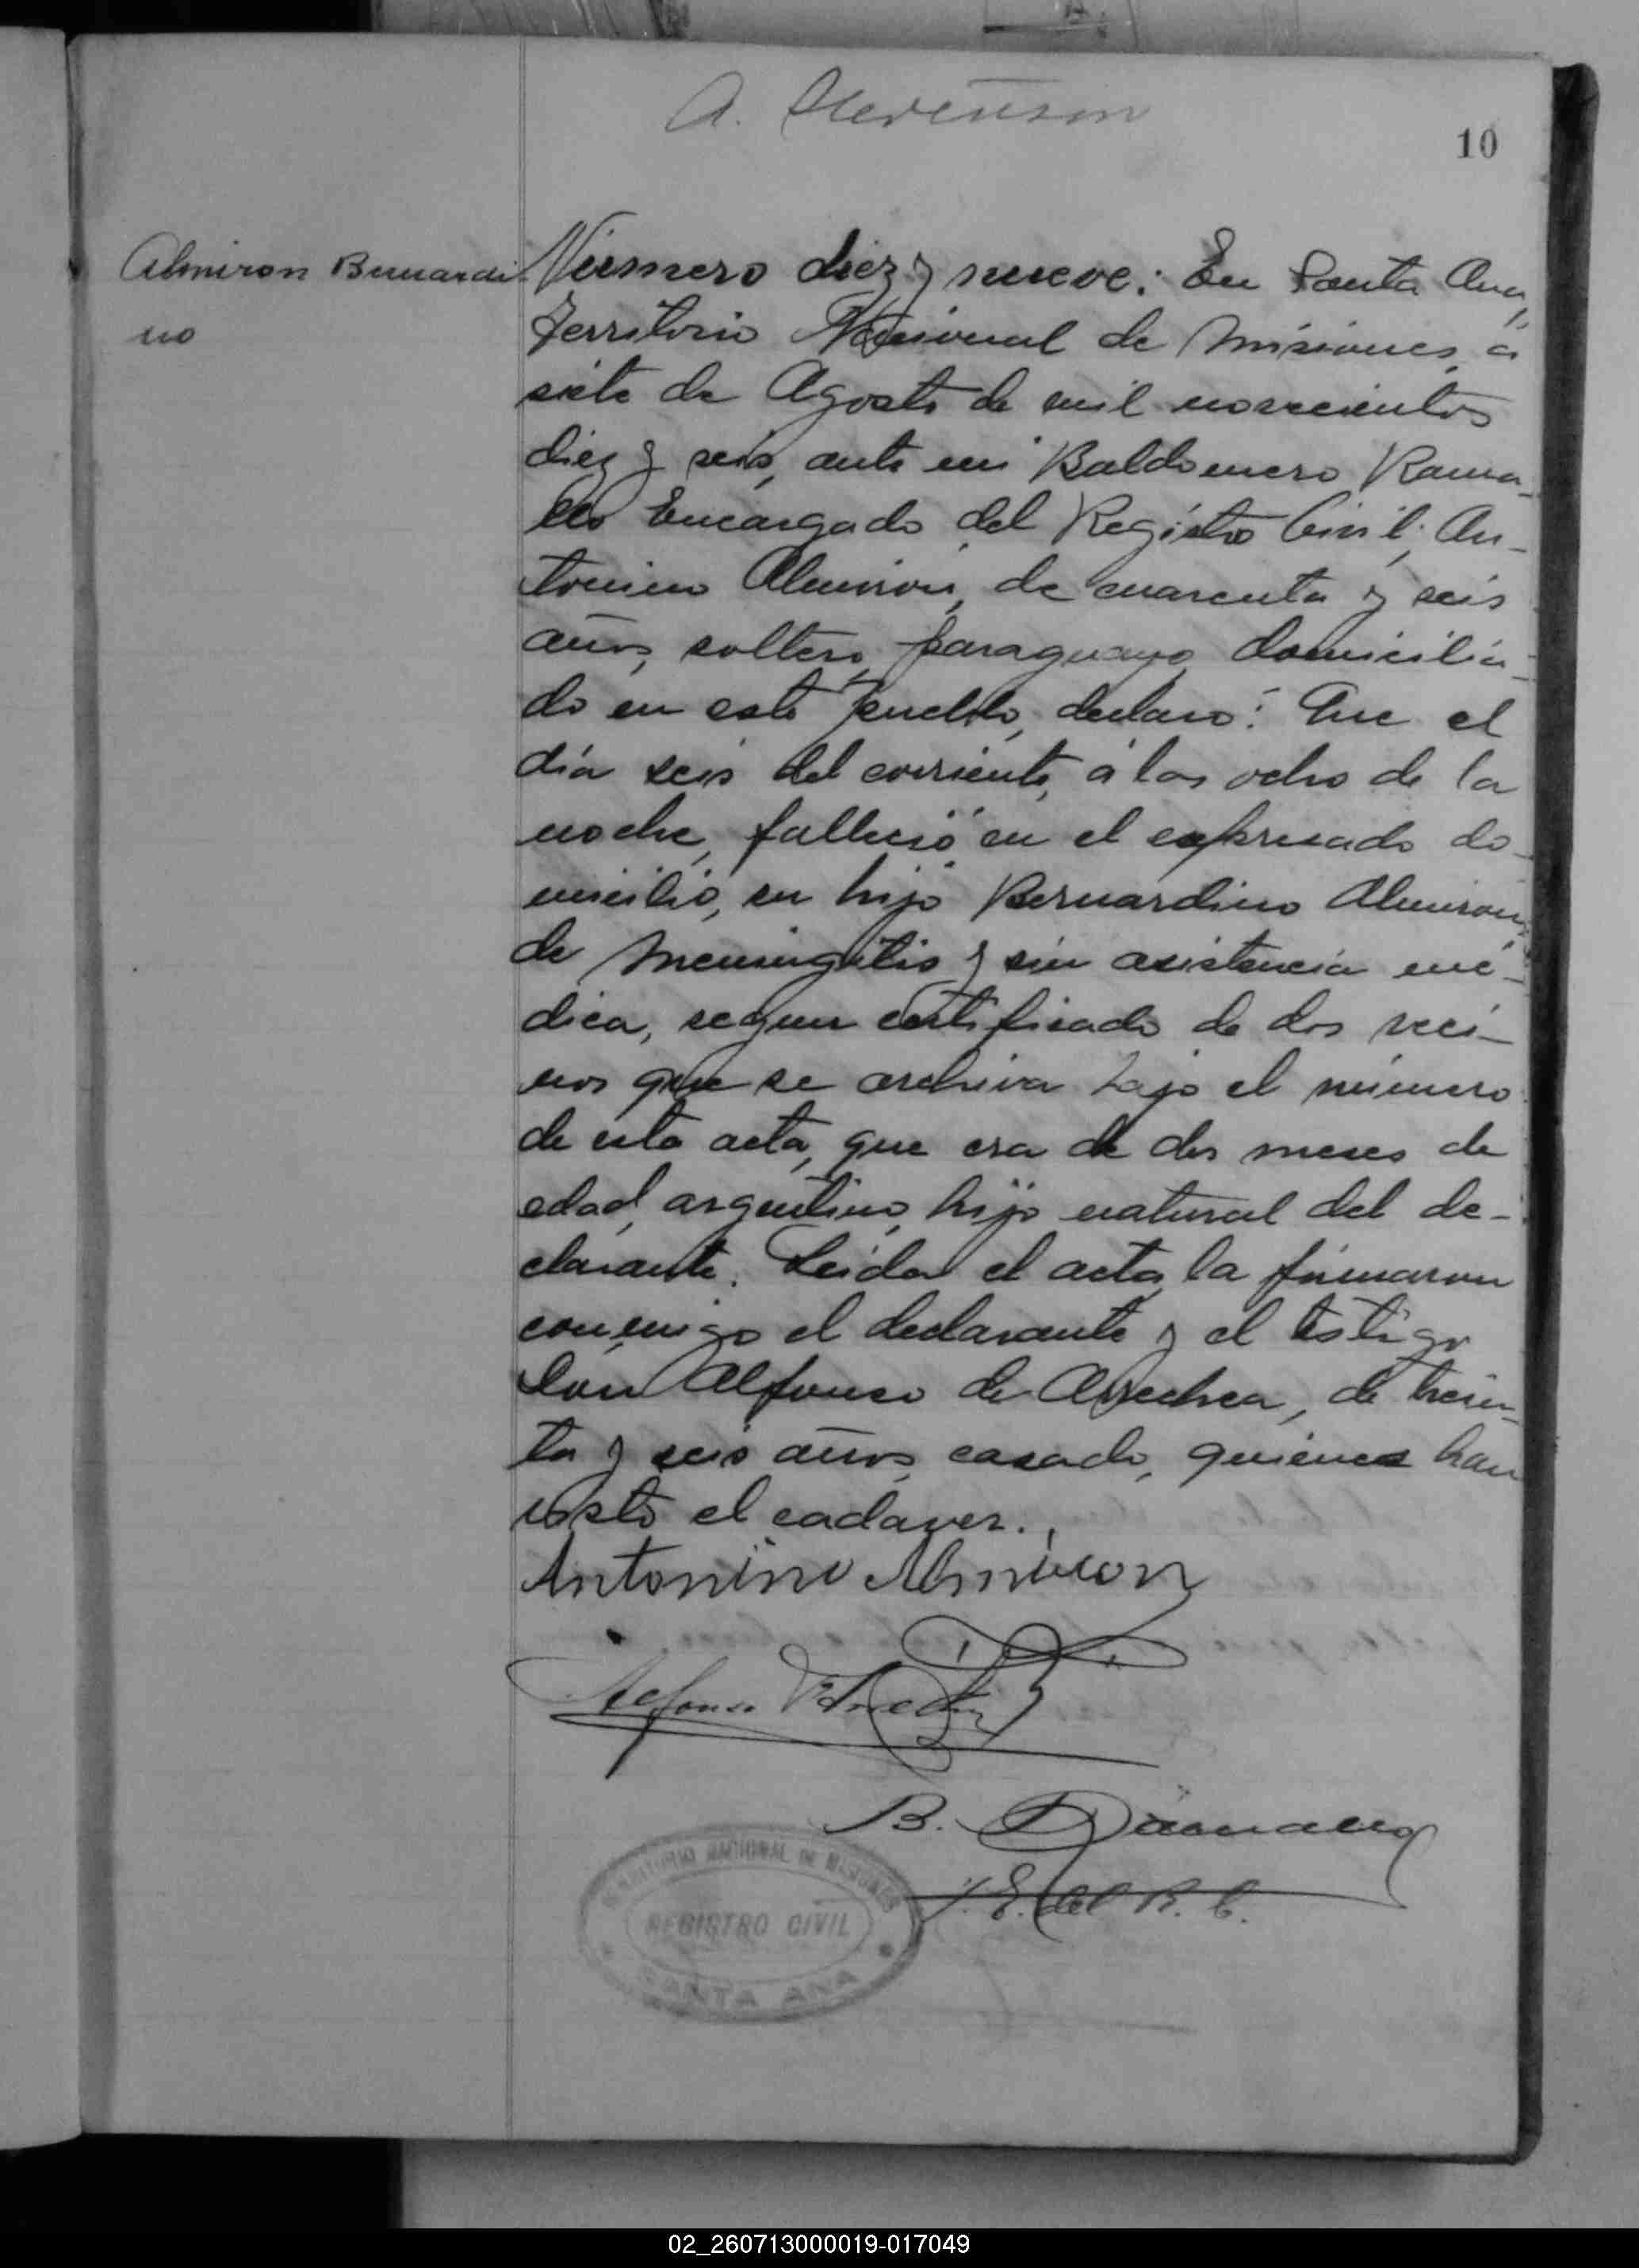 A. Stevenson
10
Almiron Bernardi-
no
Número diez y nueve: En Santa Ana,
Territorio Nacional de Misiones, a
siete de Agosto de mil novecientos
diez y seis, ante mi Baldomero Rama-
llo Encargado del Registro Civil; An-
tonino Almirón, de cuarenta y seis
años, soltero, paraguayo, domicilia-
do en este pueblo, declaró: Que el
día seis del corriente, á las ocho de la
noche, falleció en el expresado do-
micilio, su hijo Bernardino Almirón,
de Meningitis y sin asistencia mé-
dica, segun certificado de dos veci-
nos que se archiva bajo el número
de esta acta, que era de dos meses de
edad, argentino, hijo natural del de-
clarante. Leida el acta, la firmaron
conmigo el declarante y el testigo
Don Alfonso de Arrechea, de trein-
ta y seis años, casado, quienes han
visto el cadaver.
Antonino Almiron
Alfonso
B. Ramallo
E. del R. C.
TERRITORIO NACIONAL DE MISIONES
REGISTRO CIVIL
SANTA ANA
02_260713000019-017049